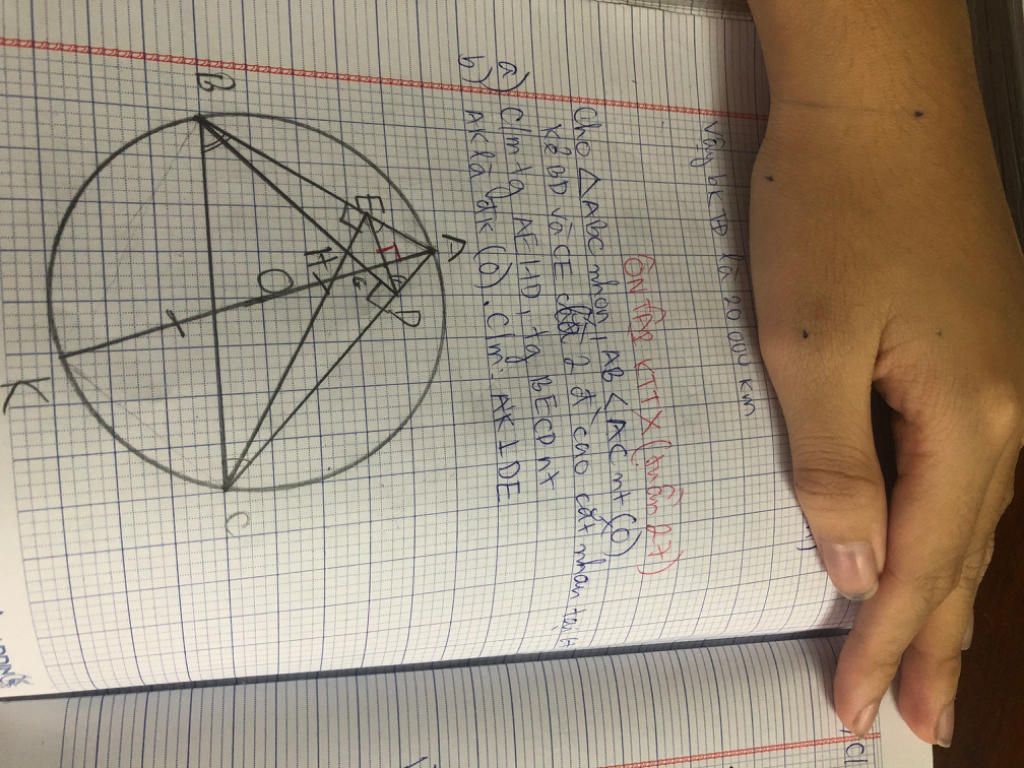 Vậy bk TĐ là 20.000 km
ÔN TẬP KTTX (tuần 27)
Cho △ ABC nhọn, AB < AC nt (O)
Kẻ BD và CE 2 đ' cao cắt nhau tại H
a) C/m tg AEHD, tg BECD nt
b) AK là đgk (O). C/m: AK ⊥ DE
A
B
E
I
D
H
O
K
C